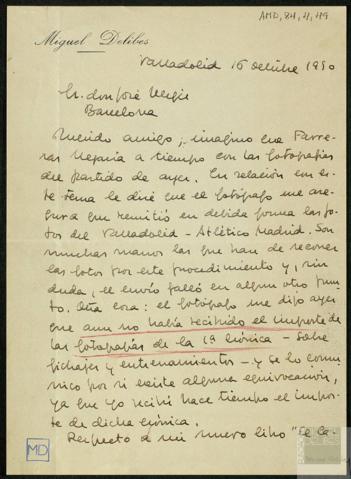 AMD, 84, 4, 49
Miguel Delibes
Valladolid 16 octubre 1980
Sr. don José Vergés
Barcelona
Querido amigo; imagino que Farre-
ras llegaría a tiempo con las fotografías
del partido de ayer. En relación con es-
te tema le diré que el fotógrafo me ase-
gura que remitió en debida forma las fo-
tos del Valladolid - Atlético Madrid. Son
muchas manos las que han de recorrer
las fotos por este procedimiento y, sin
duda, el envío falló en algún otro pun-
to. Otra cosa: el fotógrafo me dijo ayer
que aun no había recibido el importe de
las fotografías de la 1ª crónica - sobre
fichajes y entrenamientos - y se lo comu-
nico por si existe alguna equivocación,
ya que yo recibí hace tiempo el impor-
te de dicha crónica.
Respecto de mi nuevo libro "El Ca-
MD